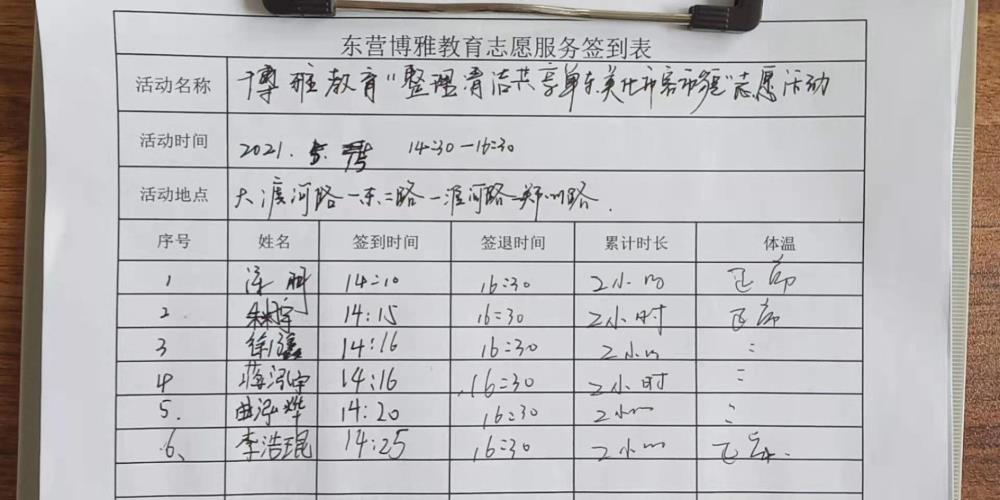 东营博雅教育志愿服务签到表
活动名称 博雅教育“整理清洁共享单车美化市容市貌”志愿活动
活动时间 2021. 14:30—16:30
活动地点 大渡河路—东二路—淮河路—郑州路.
序号 姓名 签到时间 签退时间 累计时长 体温
1 14:10 16:30 2小时 正常
2 14:15 16:30 2小时 正常
3 14:16 16:30 2小时 :
4 蒋泓宇 14:16 16:30 2小时 :
5. 曲泓烨 14:20 16:30 2小时 :
6、 李浩琨 14:25 16:30 2小时 正常.